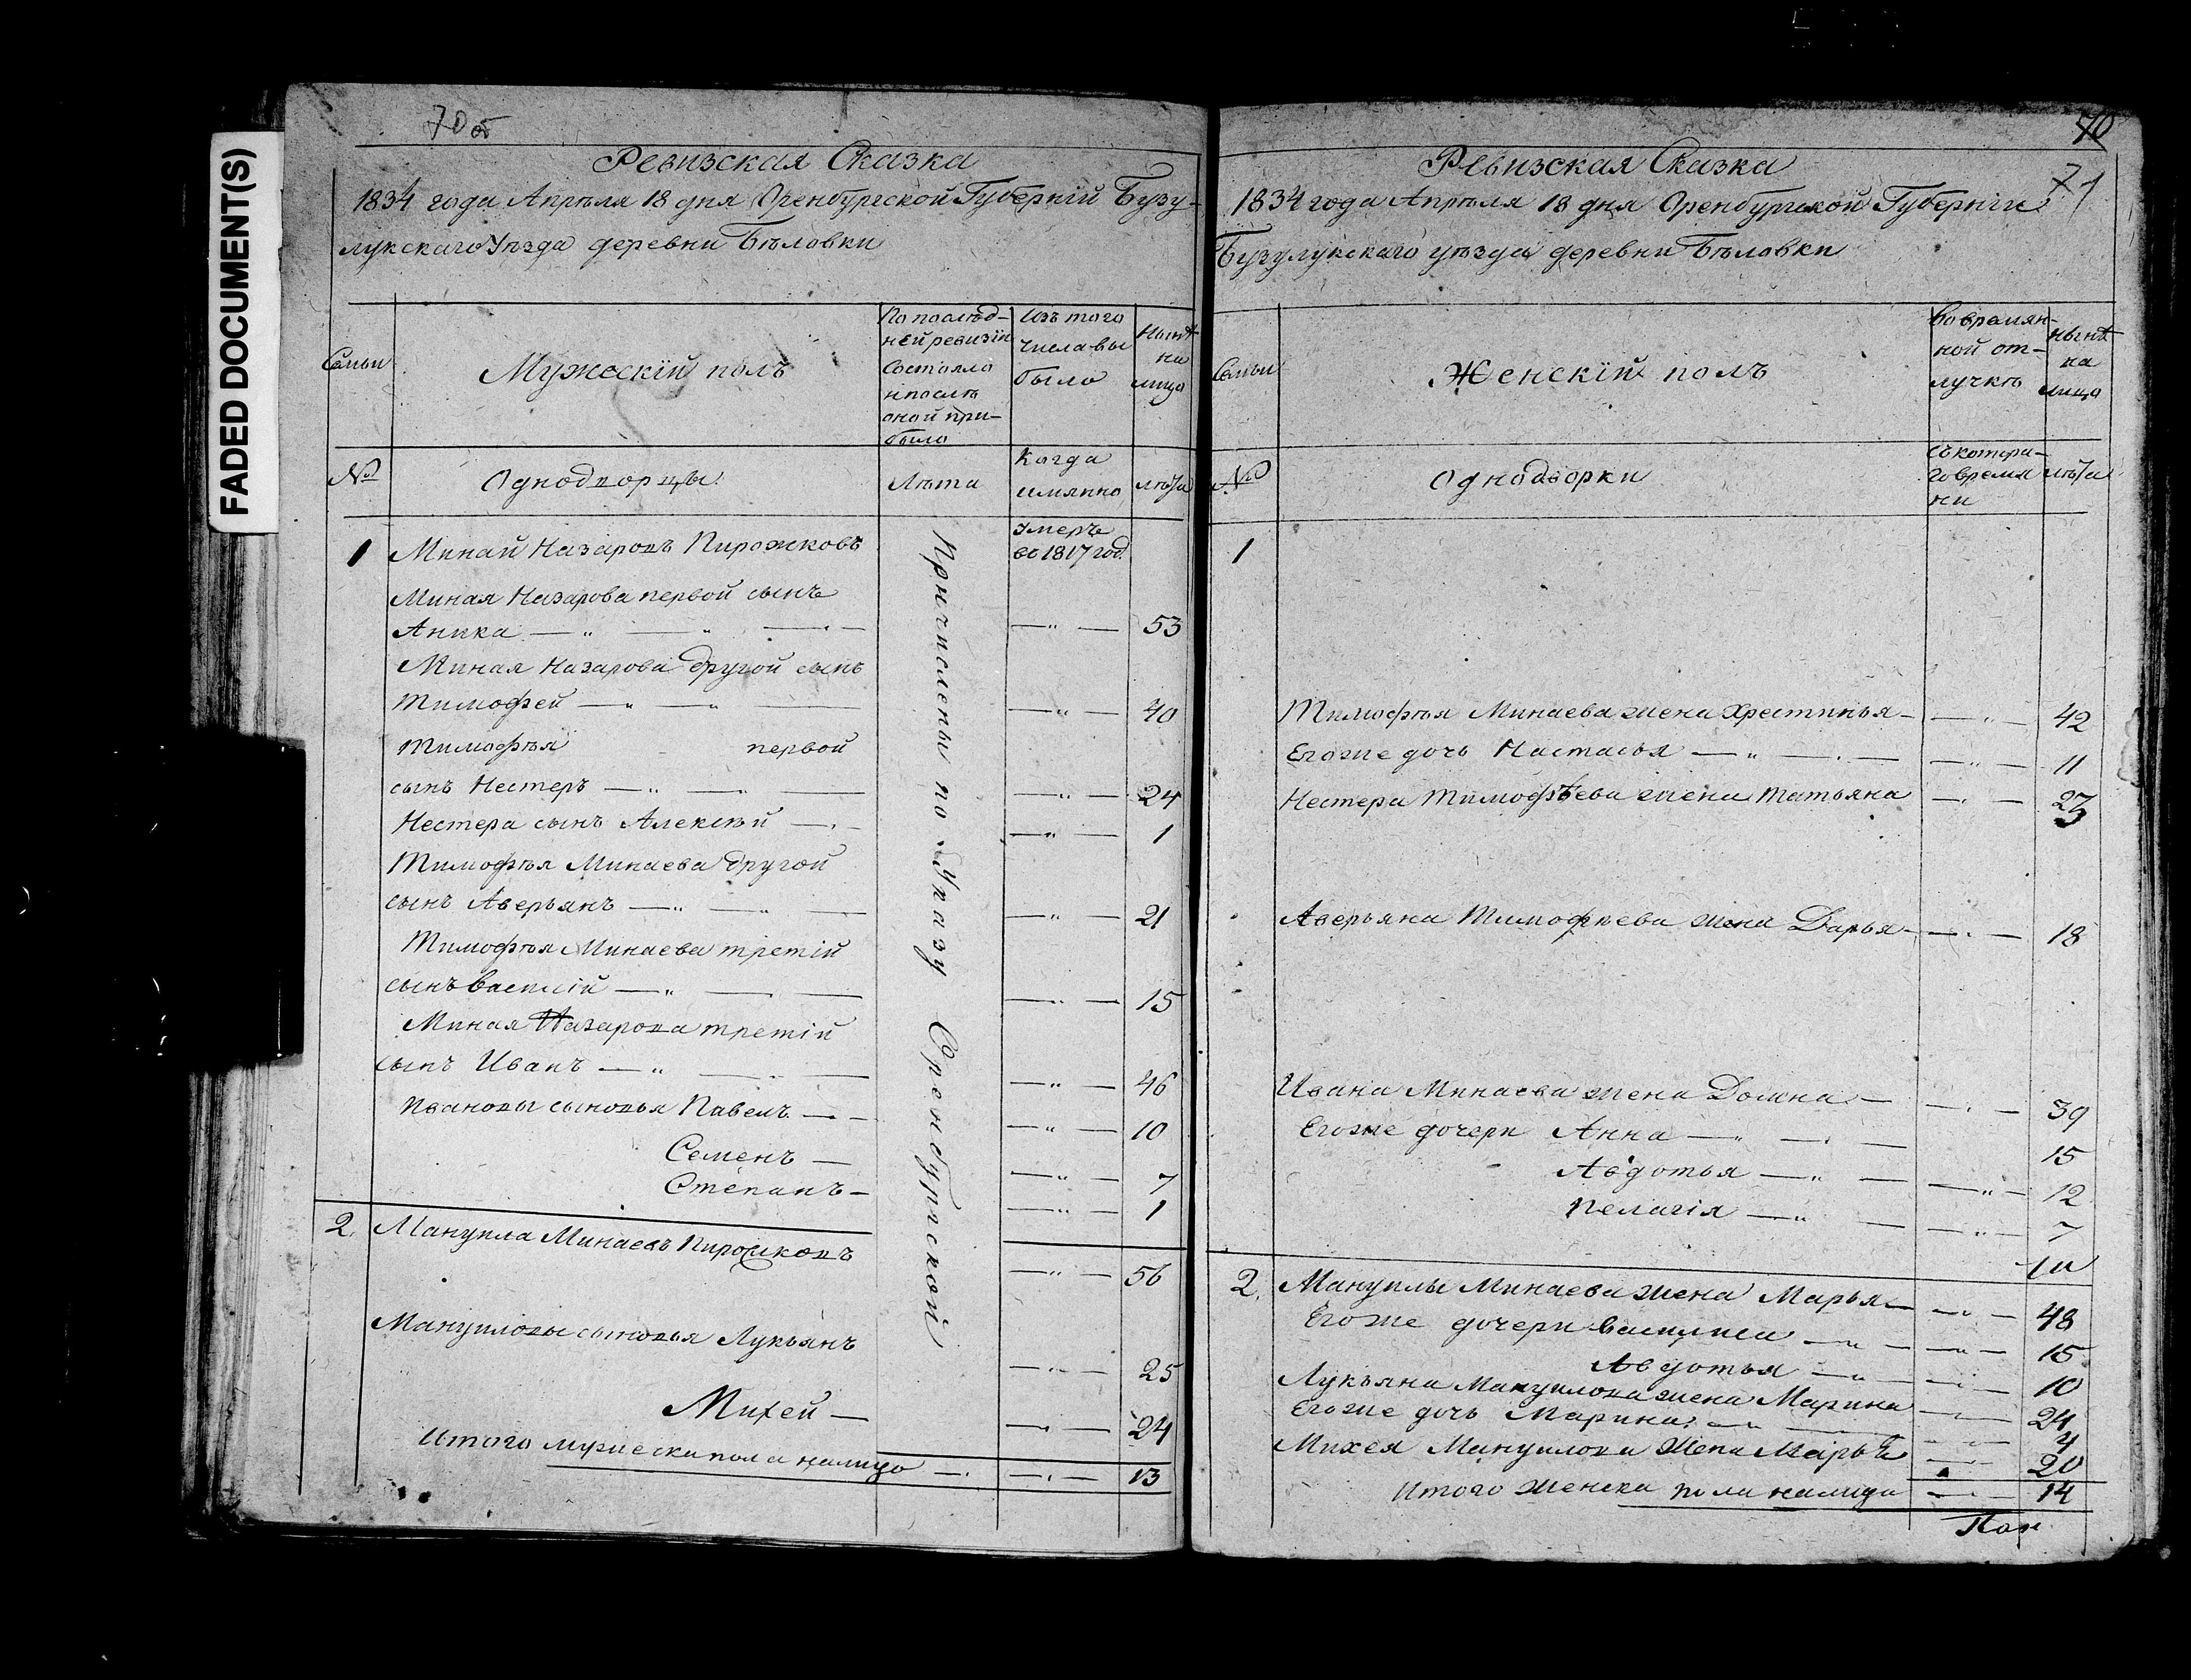 FADED DOCUMENT(S)
70 об
Ревизская Сказка
1834 года Апрѣля 18 дня Оренбургской Губерній Бузу-
лукскаго Уѣзда деревни Бѣловки
Семьи
Мужескій полъ
По послѣд-
ней ревизіи
Состояло
и послѣ
оной при-
было
Изъ того
числа вы
было
Нынѣ
на
лицо
№
Однодворцы
Лѣта
Когда
имянно
лѣта
Причислены по Указу Оренбургской
1 Минай Назаровъ Пирожковъ Умеръ
въ 1817 год.
Миная Назарова первой сынъ
Аника — „ — „ — — „ — 53
Миная Назарова другой сынъ
Тимофей — „ — „ — — „ — 40
Тимофѣя первой
сынъ Нестеръ — „ — „ — — „ — 24
Нестера сынъ Алексѣй — „ — — „ — 1
Тимофѣя Минаева другой
сынъ Аверьянъ — „ — „ — — „ — 21
Тимофѣя Минаева третій
сынъ Василій — „ — — — „ — 15
Миная Назарова третій
сынъ Иванъ — „ — — — „ — 46
Ивановы сыновья Павелъ — — — „ — 10
Семенъ — — „ — 7
Степанъ — — „ — 1
2. Мануила Минаевъ Пирошковъ — „ — 56
Мануиловы сыновья Лукьянъ — „ — 25
Михей — — „ — 24
Итого мужеска пола налицо — — „ — 13
40
71
Ревизская Сказка
1834 года Апрѣля 18 дня Оренбургской Губерніи
Бузулукскаго уѣзда деревни Бѣловки
Семьи
Женскій полъ
Во времян-
ной от-
лучкѣ
Нынѣ
на
лицо
№
Однодворки
Съ котора-
го время
ни
лѣта
1
Тимофѣя Минаева жена Христинья — — „ — 42
Егоже дочь Настасья — „ — — — „ — 11
Нестера Тимофѣева жена Татьяна — „ — 23
Аверьяна Тимофѣева жена Дарья — — „ — 18
Ивана Минаева жена Домна — — „ — 39
Егоже дочери Анна — „ — — 15
Авдотья — „ — — „ — 12
Пелагія — „ — — „ — 7
2. Мануилы Минаева жена Марья — — „ — 48
Егоже дочери Василиса — „ — — „ — 15
Авдотья — „ — — „ — 10
Лукьяна Мануилова жена Марина — „ — 24
Егоже дочь Марина — „ — — „ — 4
Михея Мануилова жена Марья — „ — 20
Итого женска пола налицо — „ — 14